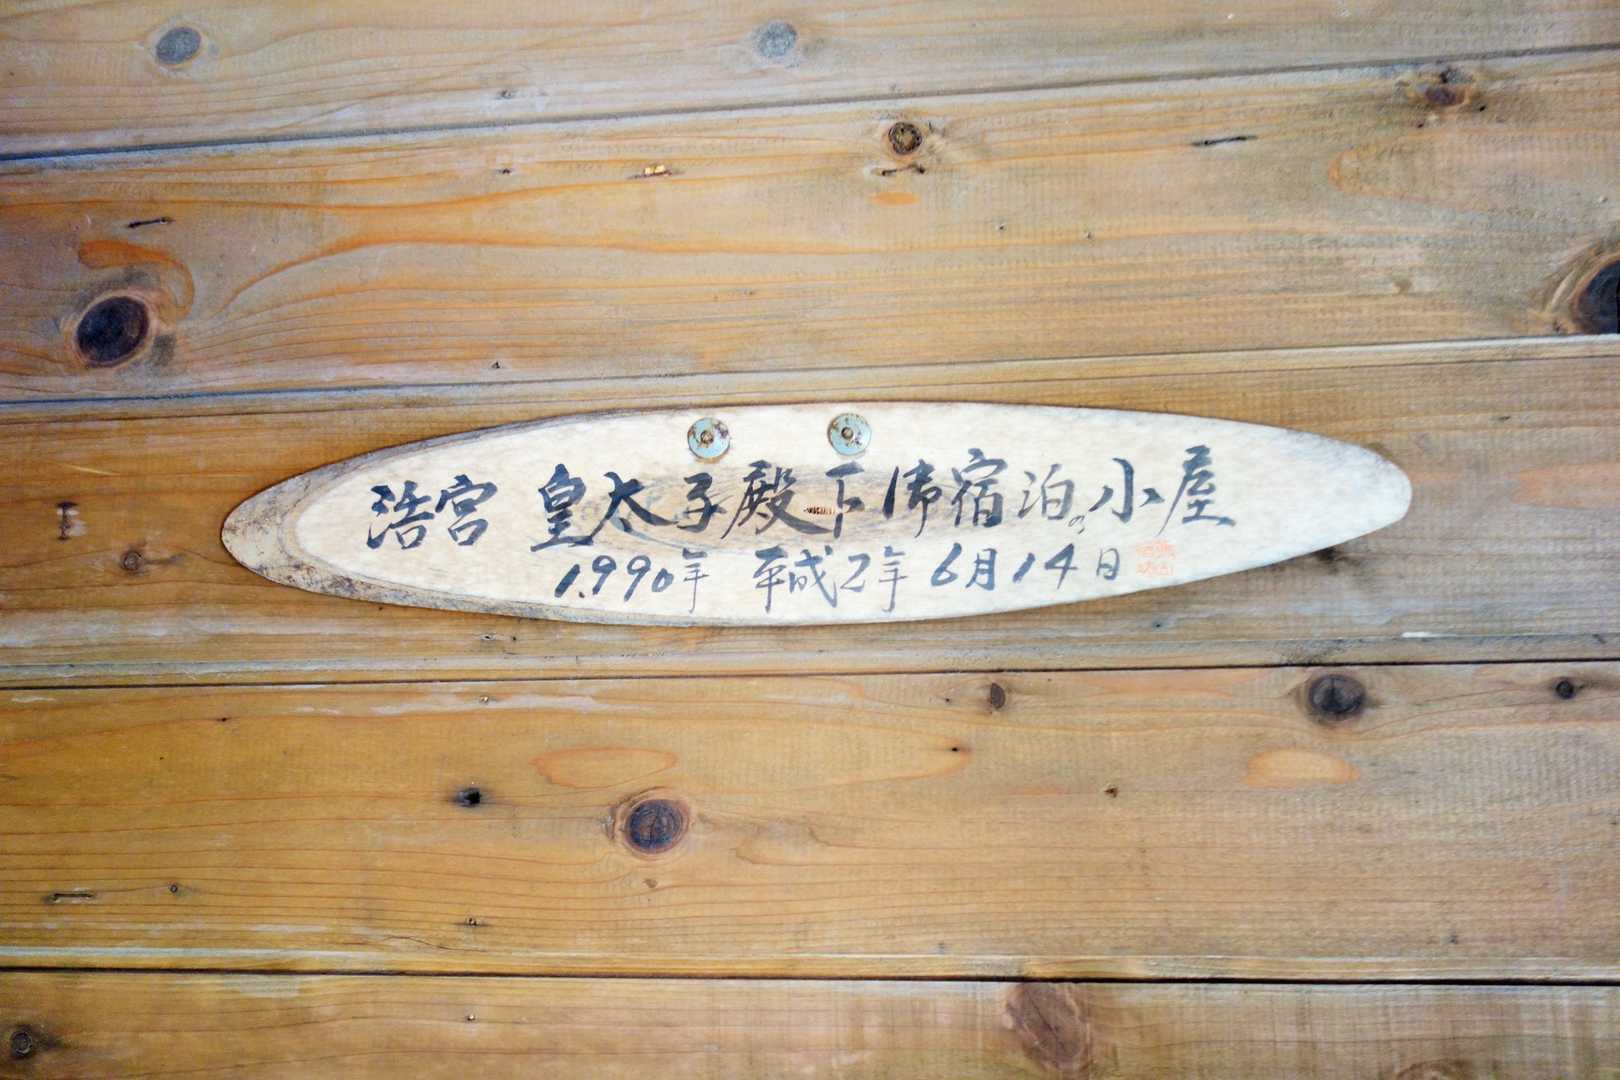 浩宮 皇太子殿下御宿泊の小屋
1990年 平成2年 6月14日